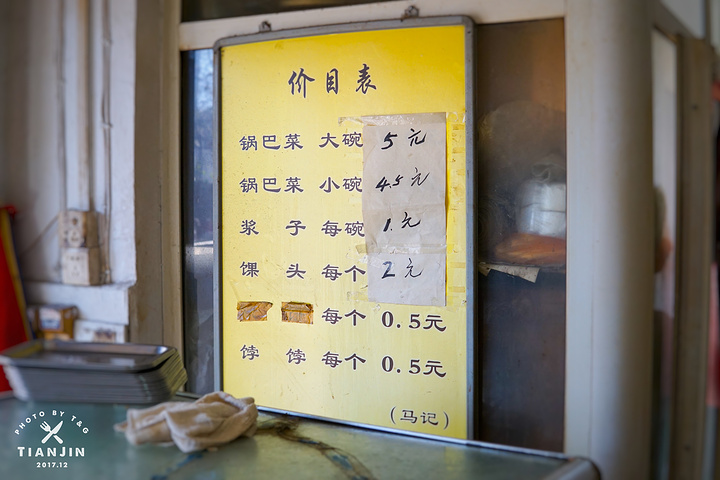 价目表
锅巴菜 大碗 5元
锅巴菜 小碗 4.5元
浆子 每碗 1.元
馃头 每个 2元
每个 0.5元
饽饽 每个 0.5元
(马记)
PHOTO BY T&G
TIANJIN
2017.12